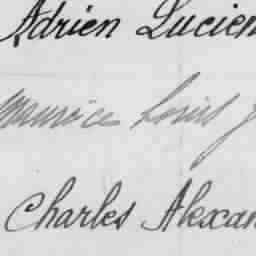 Adrien Lucien
Maurice Louis J
Charles Alexan